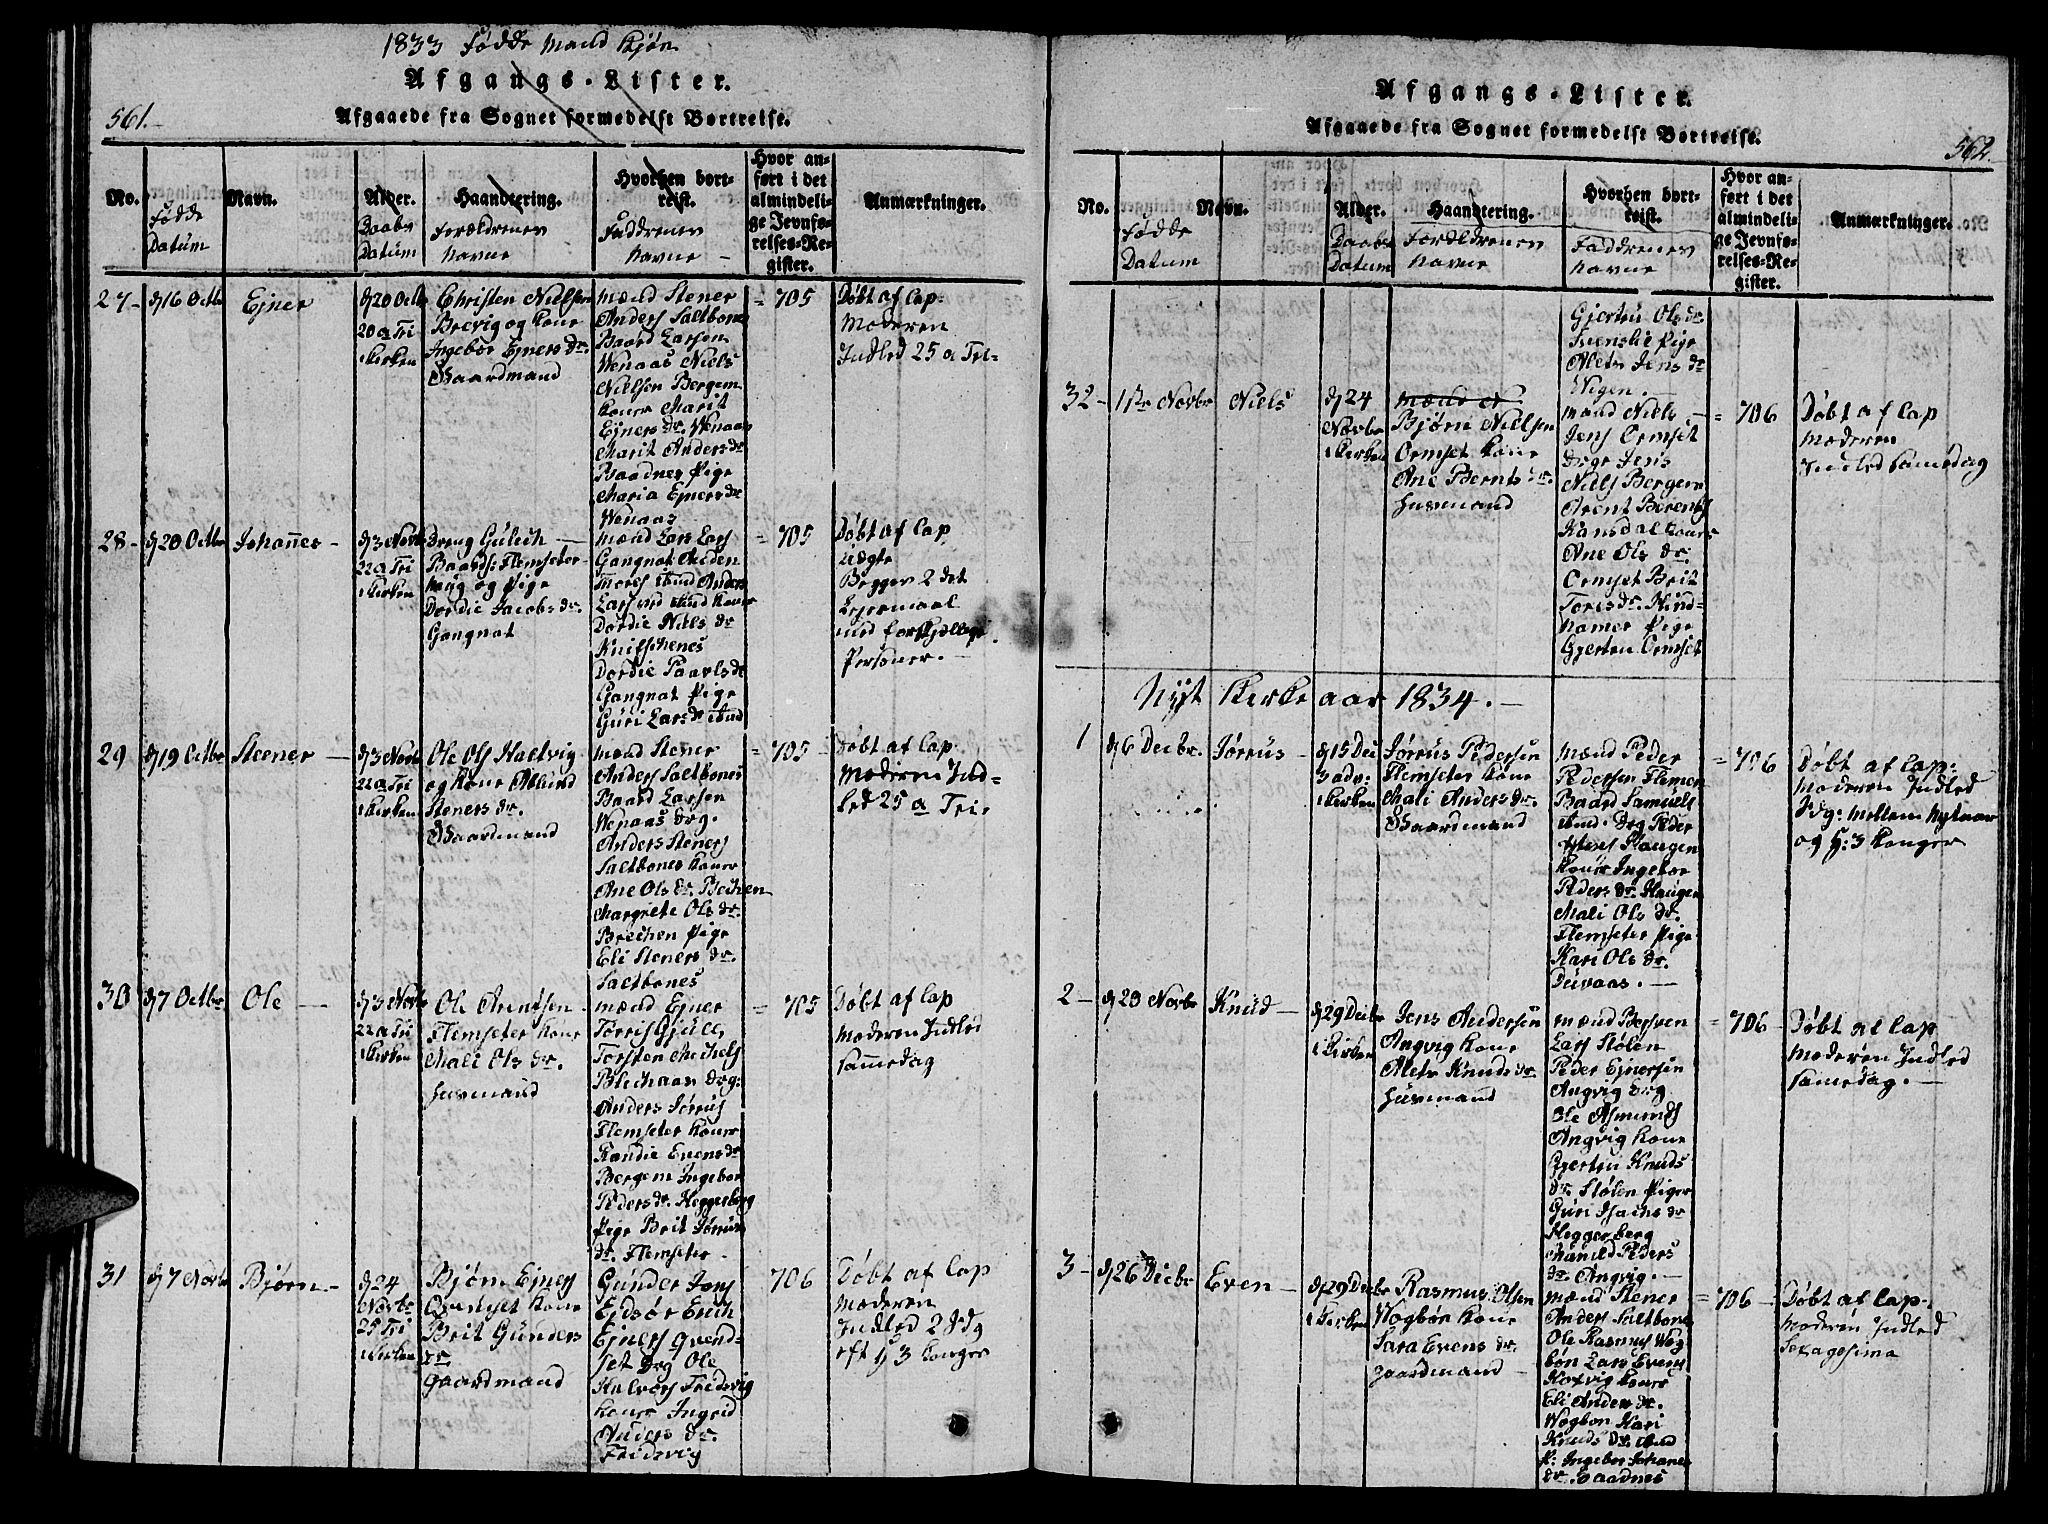 1833 Fødde Mand Kjøn
Afgangs-Lister.
561.
Afgaaede fra Sognet formedelst Bortreise.
No.
Fødde Datum
Navn.
Alder.
Daabs Datum
Haandtering.
Forældrenes Navne
Hvorhen bortreist.
Faddrenes Navne
Hvor anført i det almindelige Jevnførelses-Register.
Anmærkninger.
27 -
d 16 Octb
Ejner
d 20 Octb
20 a Tri
i Kirken
Christen Nielsen
Brevig og Kone
Ingebor Ejners dr.
Gaardmand
Mænd Stener
Anders Saltbones
Baard Larsen
Wenaas Niels
Nielsen Bergem
Koner Marit
Ejners dr. Wenaas
Marit Anders dr
Baadnes Pige
Maria Ejners dr
Wenaas
= 705
Døbt af Cap:
Moderen
Indled 25 a Tri-
28 -
d 20 Octbr
Johannes -
d 3 Novb
22 a Tri
i Kirken
Dreng Gulich
Baards: Flemseter-
houg og Pige
Dordie Jacobs dr.
Gangnat
Mænd Lars Lars
Gangnat Anden
Tores ibid Anders
Lars ved ibid Koner
Dordie Niels dr
Knitschenes
Dordie Paarls dr
Gangnat Pige
Guri Lars dr ibid
= 705
Døbt af Cap
Uægte
Begges 2det
Lejermaal
med forskjellige
Personer.
29
d 19 Octbr
Steener
d 3 Novb
22 a Tri
i Kirken
Ole Ols Haltvig
og Kone Ablund
Steners dr.
Gaardmand
Mænd Stener
Anders Saltbones
Baard Larsen
Wenaas drg.
Anders Steners
Saltbones Koner
Ane Ols dr. Bechen
Margrete Ols dr.
Brechen Pige
Eli Steners dr.
Saltbones
= 705
Døbt af Cap.
Moderen Ind-
led 25 a Tri.
30
d 7 Octbr.
Ole
d 3 Novb
22 a Tri
i Kirken
Ole Arntsen
Flemseter Kone
Mali Ols dr.
Husmand
Mænd Ejner
Torris Gjull
Torsten Michels
Blichaas drg:
Anders Jørrus
Flemseter Koner
Randie Evens dr
Bergem Ingebor
Peders dr. Heggerberg
Pige Brit Jørrus
dr. Flemseter
= 705
Døbt af Cap
Moderen Indled
samedag
31
d 7 Novb
Bjørn -
d 24
Novbr
25 Tri
i Kirken
Bjørn Ejners
Qvenset Kone
Brit Gunders
dr
Gaardmand
Gunder Jons
Ejdsør Erich
Ejners Qvend-
set Drg Ole
Halvors Fredsvig
Koner Ingrid
Anders dr.
Fredsvig
706
Døbt af Cap
Moderen
Indled 2 Sdg
eft H 3 Konger
Afgangs-Lister.
Afgaaede fra Sognet formedelst Bortreise.
562.
No.
Fødde Datum
Navn.
Alder.
Daabs Datum
Haandtering.
Forældrenes Navne
Hvorhen bortreist.
Faddrenes Navne
Hvor anført i det almindelige Jevnførelses-Register.
Anmærkninger.
Gjertru Ols dr
Svenslie Pige
Alete Jens dr
Wigen.
32 -
1ste Novbr
Niels
d 24
Novbr
i Kirken
Bjørn Nielsen
Ormset Kone
Ane Bernts dr.
Husmand
Mænd Niels
Jens Ormset
drge Jens
Niels Bergem
Arent Berents
Hansdal Koner
Ane Ols dr.
Ormset Brit
Toresdr. Hind-
hamer Pige
Gjertru Ormset
= 706
Døbt af Cap
Moderen
Indled samedag
Nyt Kirke aar 1834.
1
d 6 Decbr.
Jørrus
d 15 Dec
3 adv:
i Kirken
Jørrus Pedersen
Flemseter Kone
Mali Anders dr.
Gaardmand
Mænd Peder
Pedersen Flemse
Baard Samuels
ibid. Drg Peder
Haugen
Koner Ingebor
Peders dr. Haugen
Mali Ols dr.
Flemseter Pige
Kari Ols dr.
Duvaas.
= 706
Døbt af Cap:
Moderen Indled
Sdg: mellem Nytaar
og H: 3 Konger
2 -
d 23 Novbr
Knud
d 29 Decbr
i Kirken
Jens Andersen
Angvig Kone
Alete Knuds dr.
Husmand
Mænd Bersven
Lars Stølen
Peder Ejnersen
Angvig drg
Ole Asmunds
Angvig Kone
Gjertru Knuds
dr. Stølen Piger
Guri Isachs dr
Heggerberg
Marild Peders
dr. Angvig.
= 706
Døbt af Cap
Moderen Indled
samedag.
3 -
d 26 Decbr
Even
d 29 Decbr
i Kirken
Rasmus Olsen
Wogbøn Kone
Sara Evens dr.
Gaardmand
Mænd Stener
Anders Saltbones
Ole Rasmus Wog
bøn Lars Evens
Koxvig Koner
Eli Anders dr.
Wogbøn Kari
Knuds dr. ibid
P: Ingebor Johanes
dr. Baadnes
= 706
Døbt af Cap.
Moderen Indled
Sexagesima